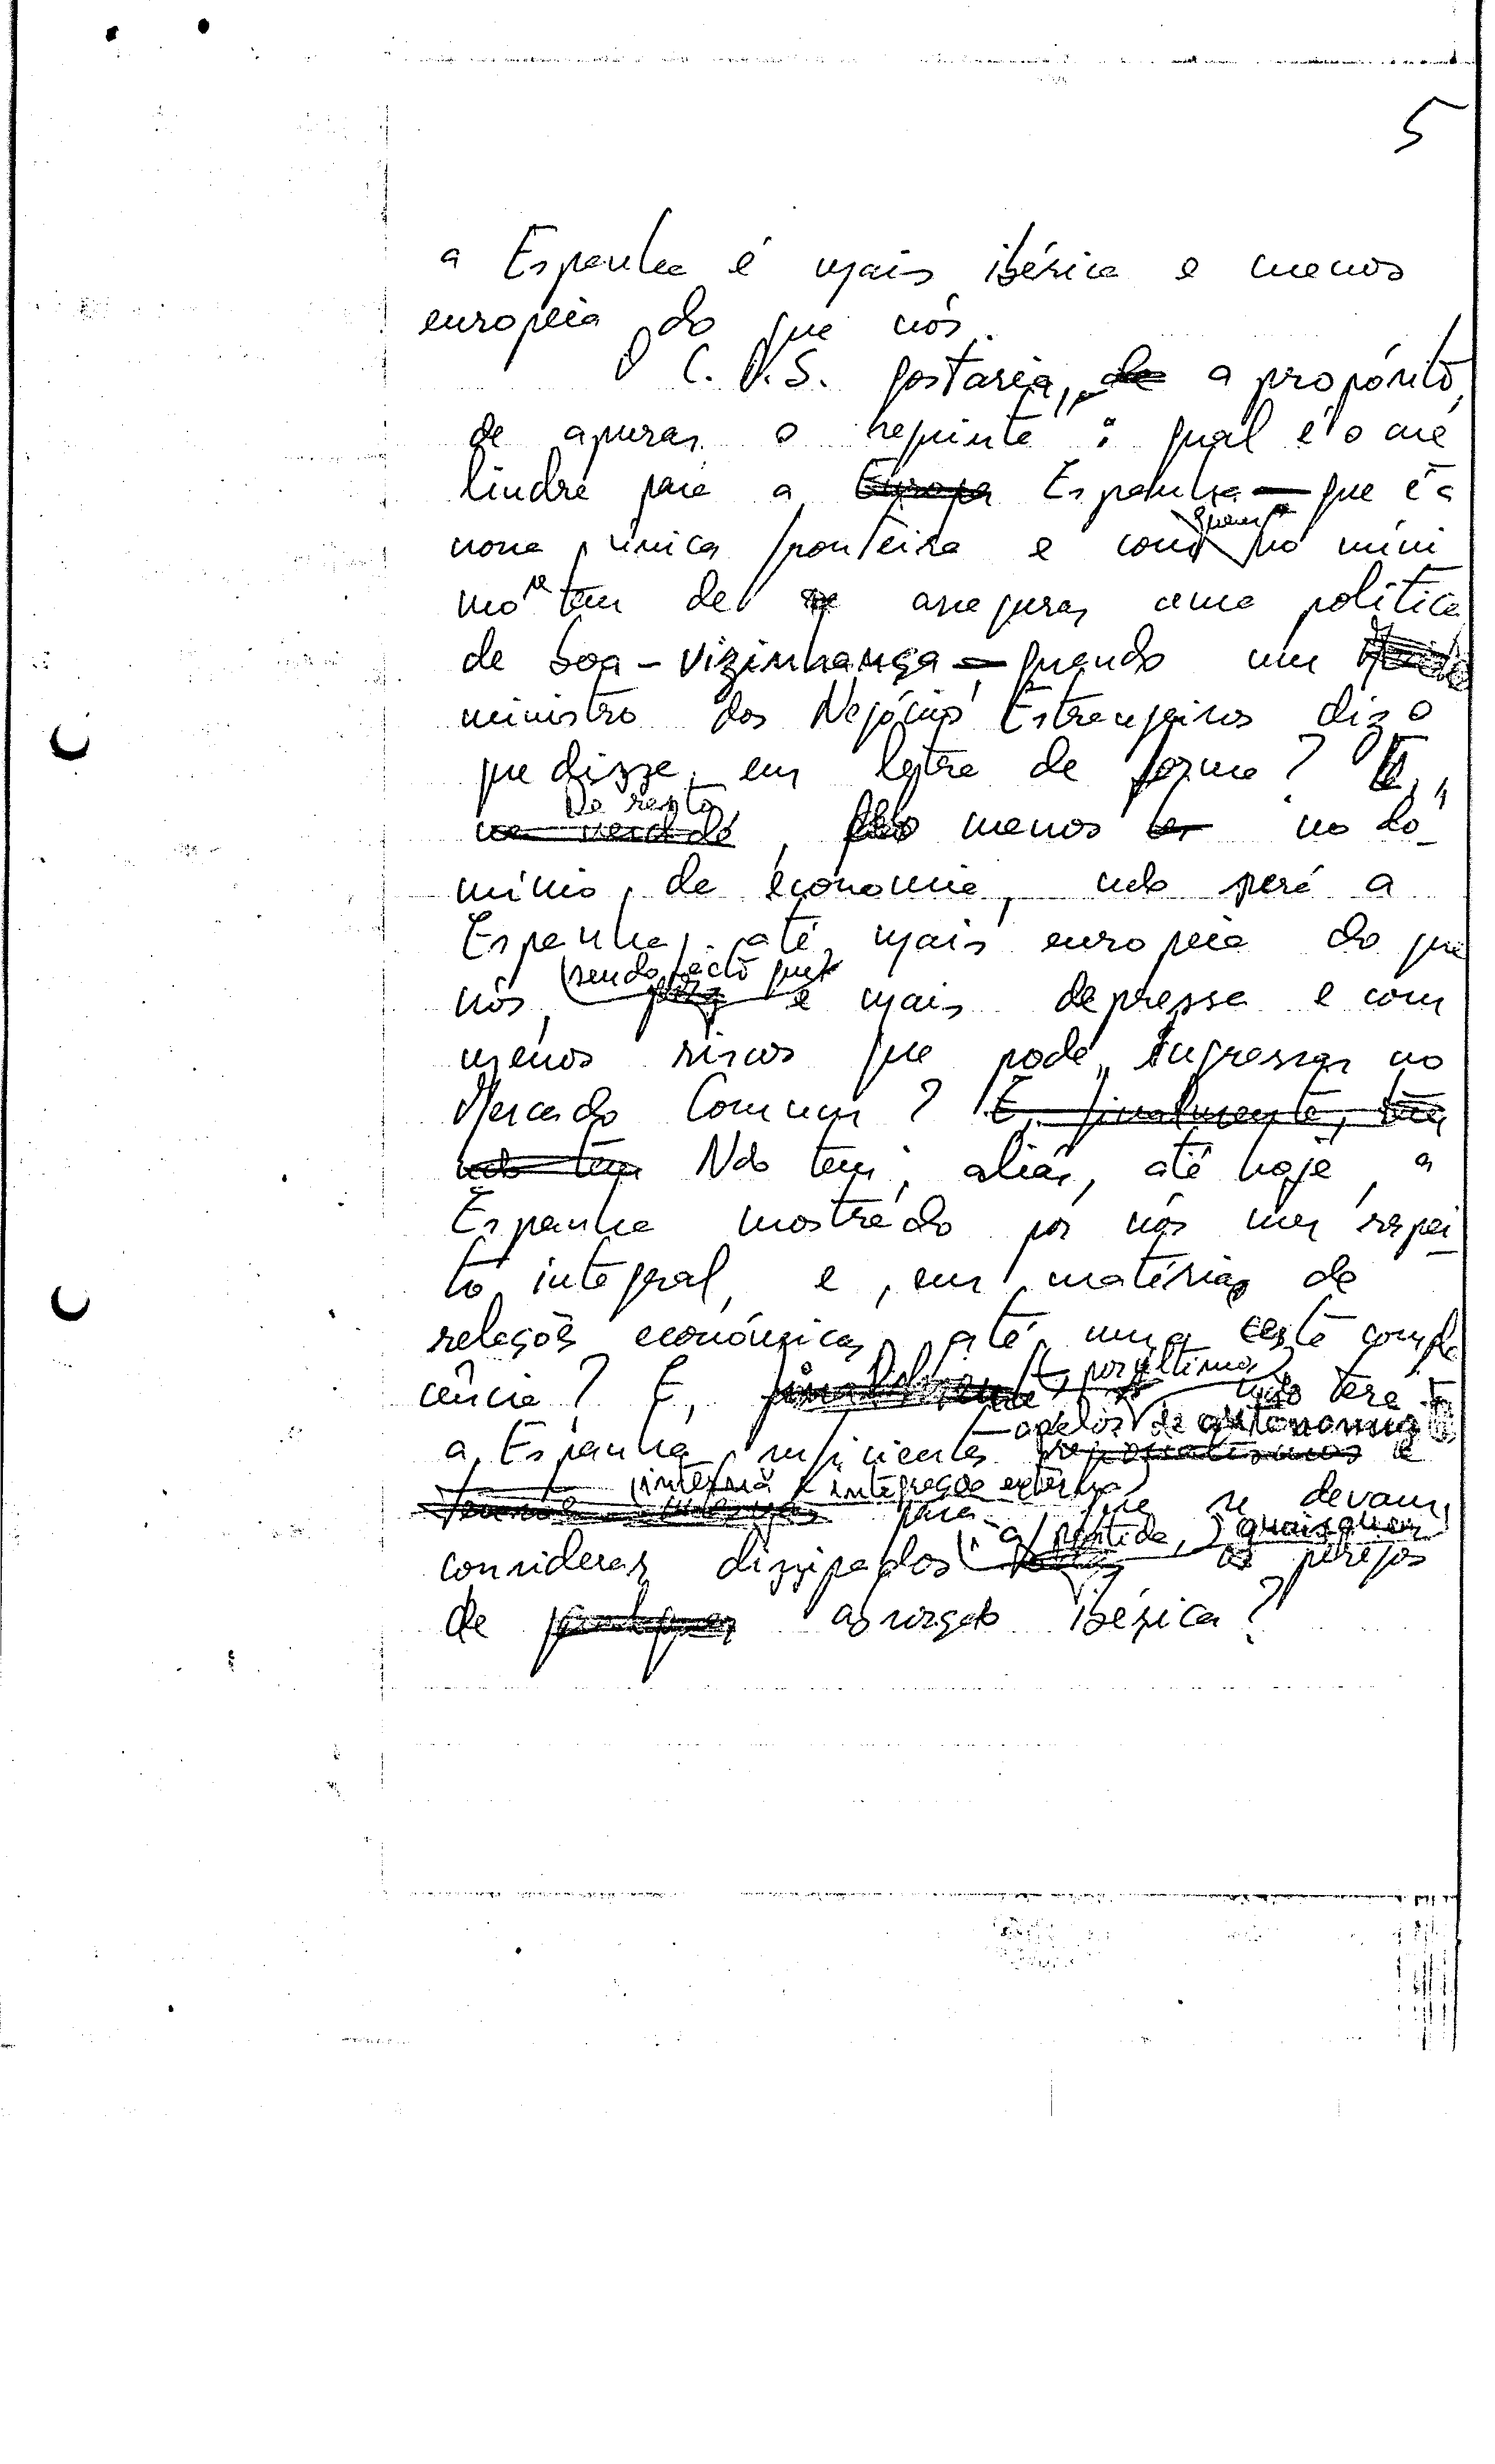 5
a Espanha é mais ibérica e menos
europeia do que nós.
O C.D.S. gostaria, de a propósito,
de apurar o seguinte: qual é o me
lindre para a Europa Espanha — que é a
nossa única fronteira e com quem no míni
mo se tem de se assegurar uma política
de boa-vizinhança — quando um
ministro dos Negócios Estrangeiros diz o
que disse, em letra de forma? E,
De resto,
na verdade, pelo menos no do-
mínio da economia, não será a
Espanha até mais europeia do que
(sendo facto que)
nós, é mais depressa e com
menos riscos que pode ingressar no
Mercado Comum? E, finalmente, tem
não tem Não tem, aliás, até hoje, a
Espanha mostrado por nós um respei-
to integral, e, em matéria de
relações económicas, até uma certa complа
cência? E, finalmente, por último, não terá
apelos de autonomia
a Espanha suficientes regionalismos e
interna e integração externa
para que se devam
a partida, quaisquer
considerar dissipados os perigos
de qualquer absorção ibérica?